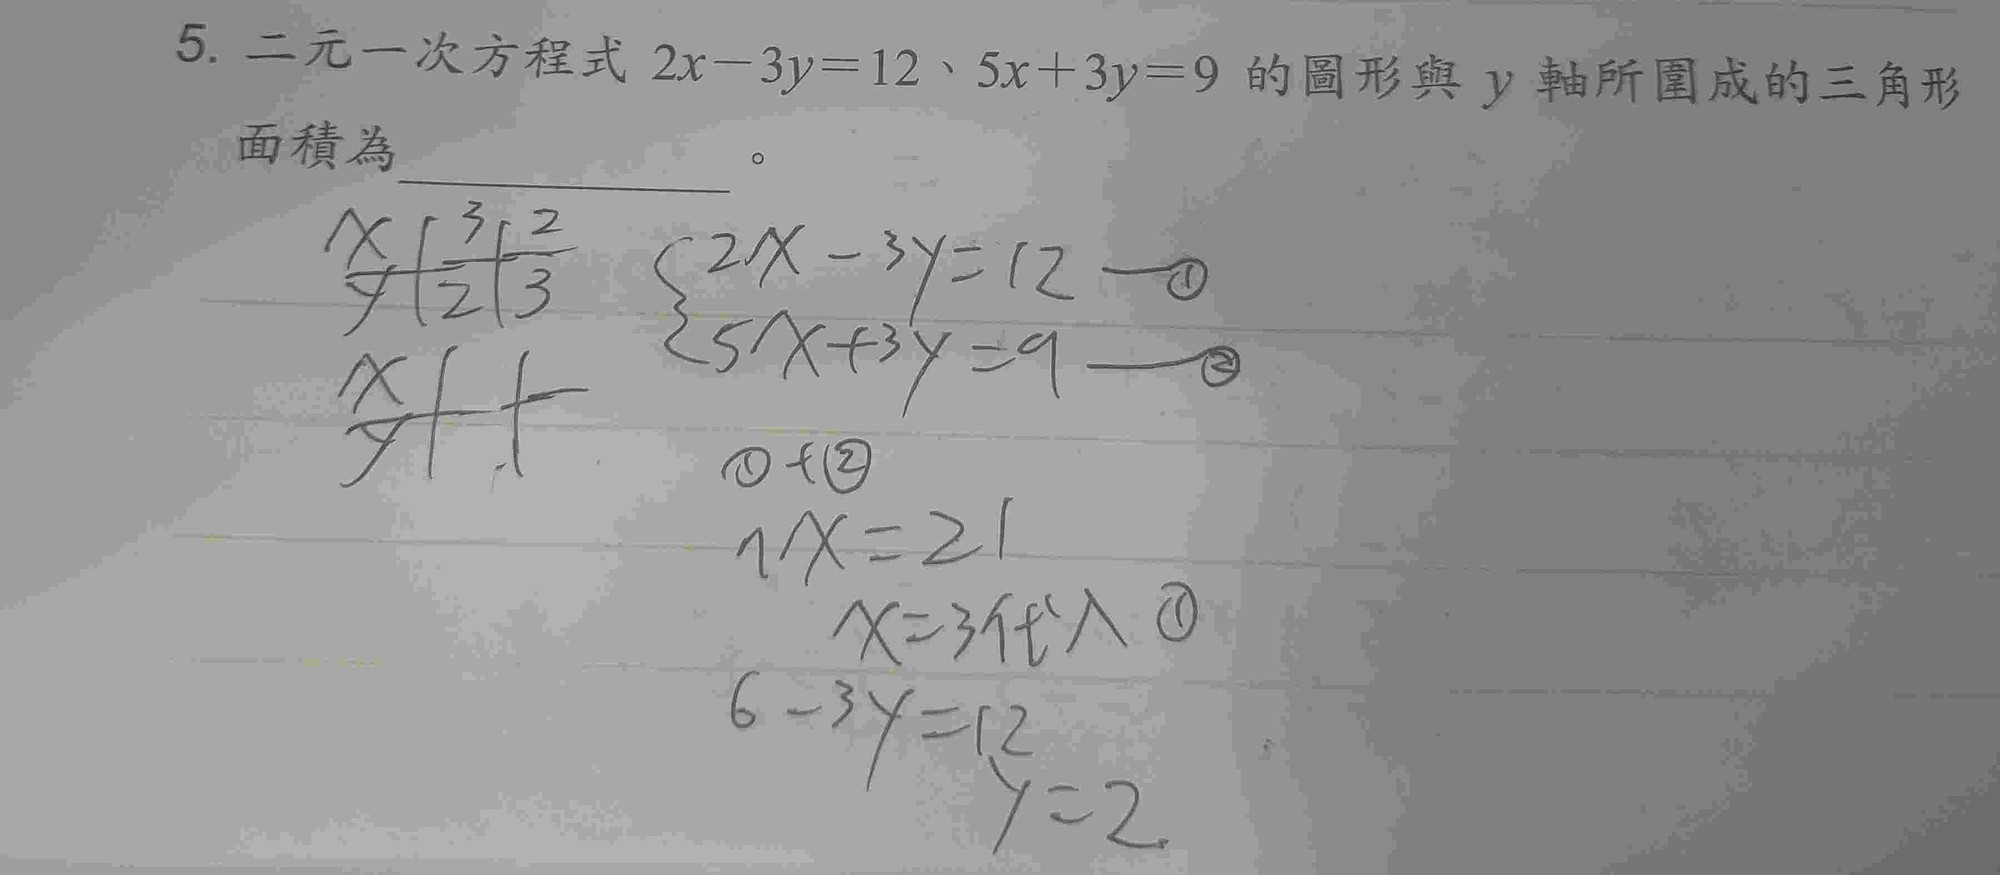 5. 二元一次方程式 2x-3y=12、5x+3y=9 的圖形與 y 軸所圍成的三角形
面積為 。
x 3 2
y 2 3
x
y
2x-3y=12 ①
5x+3y=9 ②
①+②
7x=21
x=3代入①
6-3y=12
y=2